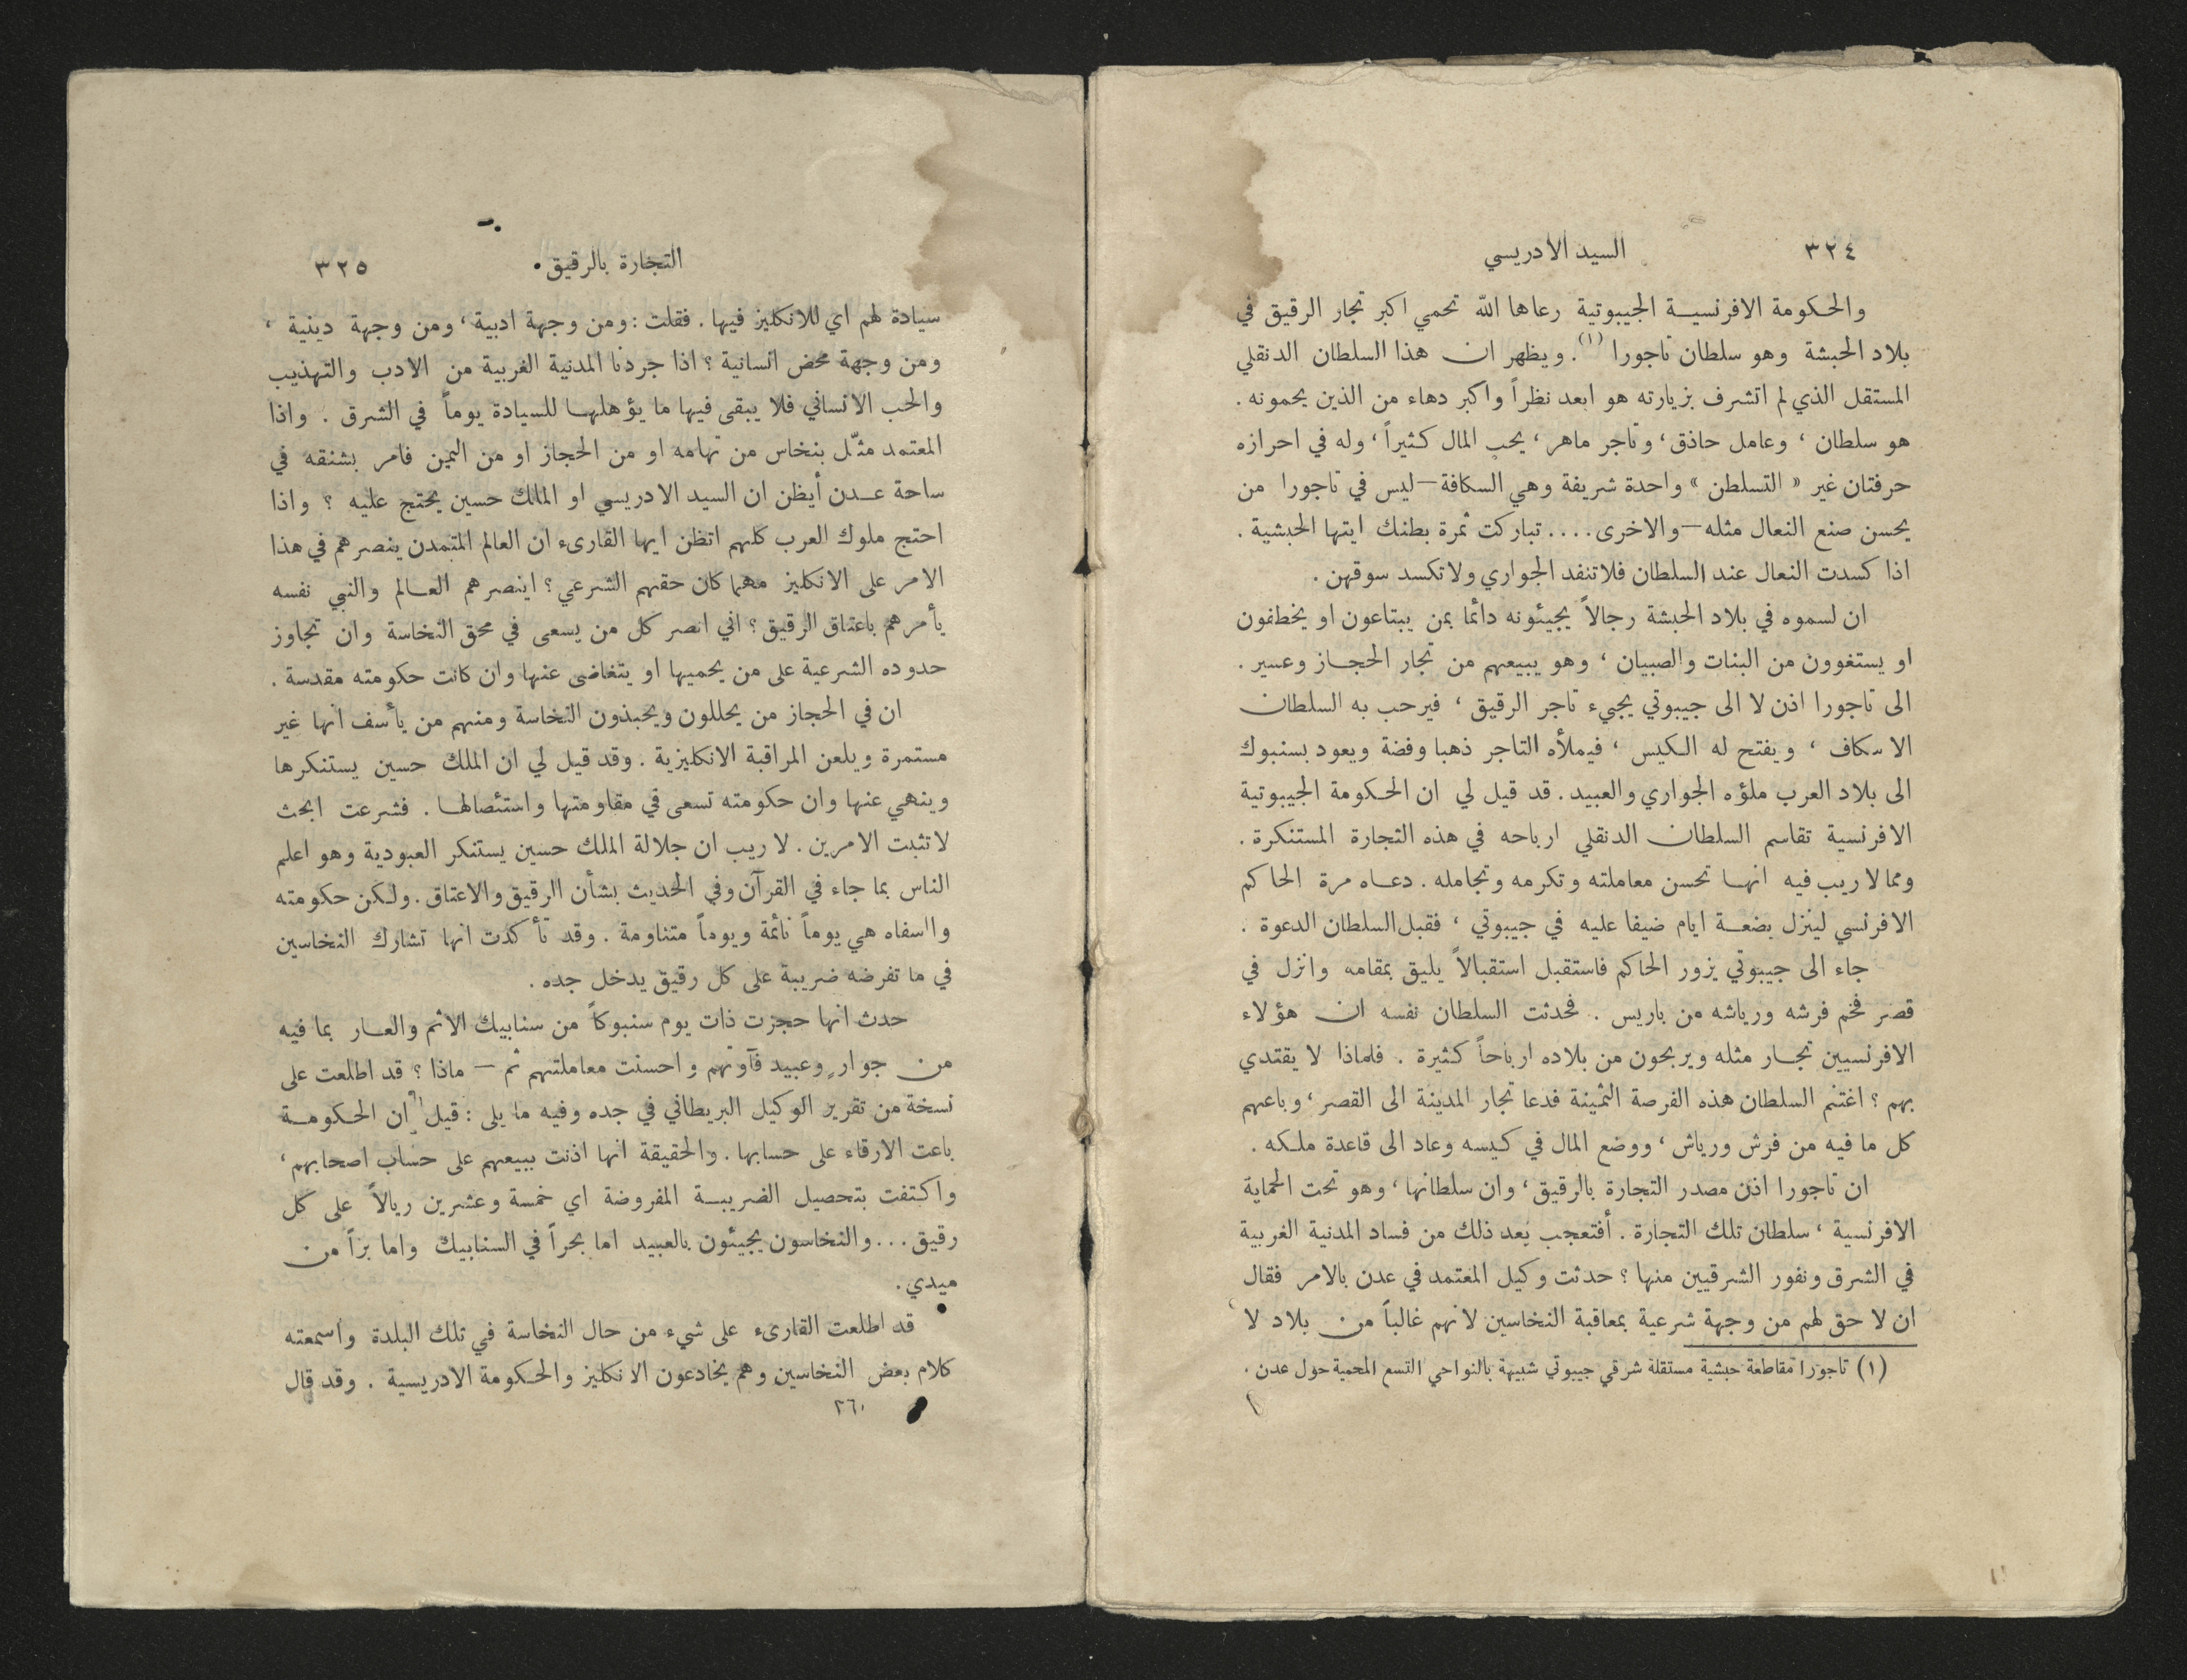 ٣٢٤
السيد الادريسي
والحكومة الافرنسية الجيبوتية رعاها الله تحمي اكبر تجار الرقيق في
بلاد الحبشة وهو سلطان تاجورا (١). ويظهر ان هذا السلطان الدنقلي
المستقل الذي لم اتشرف بزيارته هو ابعد نظراً واكبر دهاء من الذين يحمونه .
هو سلطان ، وعامل حاذق، وتاجر ماهر، يحب المال كثيراً، وله في احرازه
حرفتان غير « التسلطن » واحدة شريفة وهي السكافة—ليس في تاجورا من
يحسن صنع النعال مثله—والاخرى.... تباركت ثمرة بطنك ايتها الحبشية .
اذا كسدت النعال عند السلطان فلا تنفد الجواري ولا تكسد سوقهن .
ان لسموه في بلاد الحبشة رجالاً يجيئونه دائما بمن يبتاعون او يخطفون
او يستغوون من البنات والصبيان ، وهو يبيعهم من تجار الحجاز وعسير .
الى تاجورا اذن لا الى جيبوتي يجيء تاجر الرقيق ، فيرحب به السلطان
الاسكاف ، ويفتح له الكيس ، فيملأه التاجر ذهبا وفضة ويعود بسنبوك
الى بلاد العرب ملؤه الجواري والعبيد . قد قيل لي ان الحكومة الجيبوتية
الافرنسية تقاسم السلطان الدنقلي ارباحه في هذه التجارة المستنكرة .
ومما لا ريب فيه انها تحسن معاملته وتكرمه وتجامله . دعاه مرة الحاكم
الافرنسي لينزل بضعة ايام ضيفا عليه في جيبوتي ، فقبل السلطان الدعوة .
جاء الى جيبوتي يزور الحاكم فاستقبل استقبالاً يليق بمقامه وانزل في
قصر فخم فرشه ورياشه من باريس . فحدثت السلطان نفسه ان هؤلاء
الافرنسيين تجار مثله ويربحون من بلاده ارباحاً كثيرة . فلماذا لا يقتدي
بهم ؟ اغتنم السلطان هذه الفرصة الثمينة فدعا تجار المدينة الى القصر، وباعهم
كل ما فيه من فرش ورياش ، ووضع المال في كيسه وعاد الى قاعدة ملكه .
ان تاجورا اذن مصدر التجارة بالرقيق، وان سلطانها، وهو تحت الحماية
الافرنسية ، سلطان تلك التجارة . أفتعجب بعد ذلك من فساد المدنية الغربية
في الشرق ونفور الشرقيين منها ؟ حدثت وكيل المعتمد في عدن بالامر فقال
ان لا حق لهم من وجهة شرعية بمعاقبة النخاسين لانهم غالباً من بلاد لا
(١) تاجورا مقاطعة حبشية مستقلة شرقي جيبوتي شبيهة بالنواحي التسع المحمية حول عدن .
التجارة بالرقيق
٣٢٥
سيادة لهم اي للانكليز فيها . فقلت : ومن وجهة ادبية ، ومن وجهة دينية ،
ومن وجهة محض انسانية ؟ اذا جردنا المدنية الغربية من الادب والتهذيب
والحب الانساني فلا يبقى فيها ما يؤهلها للسيادة يوماً في الشرق . واذا
المعتمد مثّل بنخاس من تهامه او من الحجاز او من اليمن فامر بشنقه في
ساحة عدن أيظن ان السيد الادريسي او الملك حسين يحتج عليه ؟ واذا
احتج ملوك العرب كلهم اتظن ايها القارىء ان العالم المتمدن ينصرهم في هذا
الامر على الانكليز مهما كان حقهم الشرعي ؟ اينصرهم العالم والنبي نفسه
يأمرهم باعتاق الرقيق ؟ اني انصر كل من يسعى في محق النخاسة وان تجاوز
حدوده الشرعية على من يحميها او يتغاضى عنها وان كانت حكومته مقدسة .
ان في الحجاز من يحللون ويحبذون النخاسة ومنهم من يأسف انها غير
مستمرة ويلعن المراقبة الانكليزية . وقد قيل لي ان الملك حسين يستنكرها
وينهي عنها وان حكومته تسعى في مقاومتها واستئصالها . فشرعت ابحث
لاتثبت الامرين . لا ريب ان جلالة الملك حسين يستنكر العبودية وهو اعلم
الناس بما جاء في القرآن وفي الحديث بشأن الرقيق والاعتاق . ولكن حكومته
وااسفاه هي يوماً نائمة ويوماً متناومة . وقد تأكدت انها تشارك النخاسين
في ما تفرضه ضريبة على كل رقيق يدخل جده .
حدث انها حجزت ذات يوم سنبوكاً من سنابيك الاثم والعار بما فيه
من جوارٍ وعبيد فآوتهم واحسنت معاملتهم ثم — ماذا ؟ قد اطلعت على
نسخة من تقرير الوكيل البريطاني في جده وفيه ما يلي : قيل ان الحكومة
باعت الارقاء على حسابها . والحقيقة انها اذنت ببيعهم على حساب اصحابهم ،
واكتفت بتحصيل الضريبة المفروضة اي خمسة وعشرين ريالاً على كل
رقيق ... والنخاسون يجيئون بالعبيد اما بحراً في السنابيك واما براً من
ميدي .
قد اطلعت القارىء على شيء من حال النخاسة في تلك البلدة واسمعته
كلام بعض النخاسين وهم يخادعون الانكليز والحكومة الادريسية . وقد قال